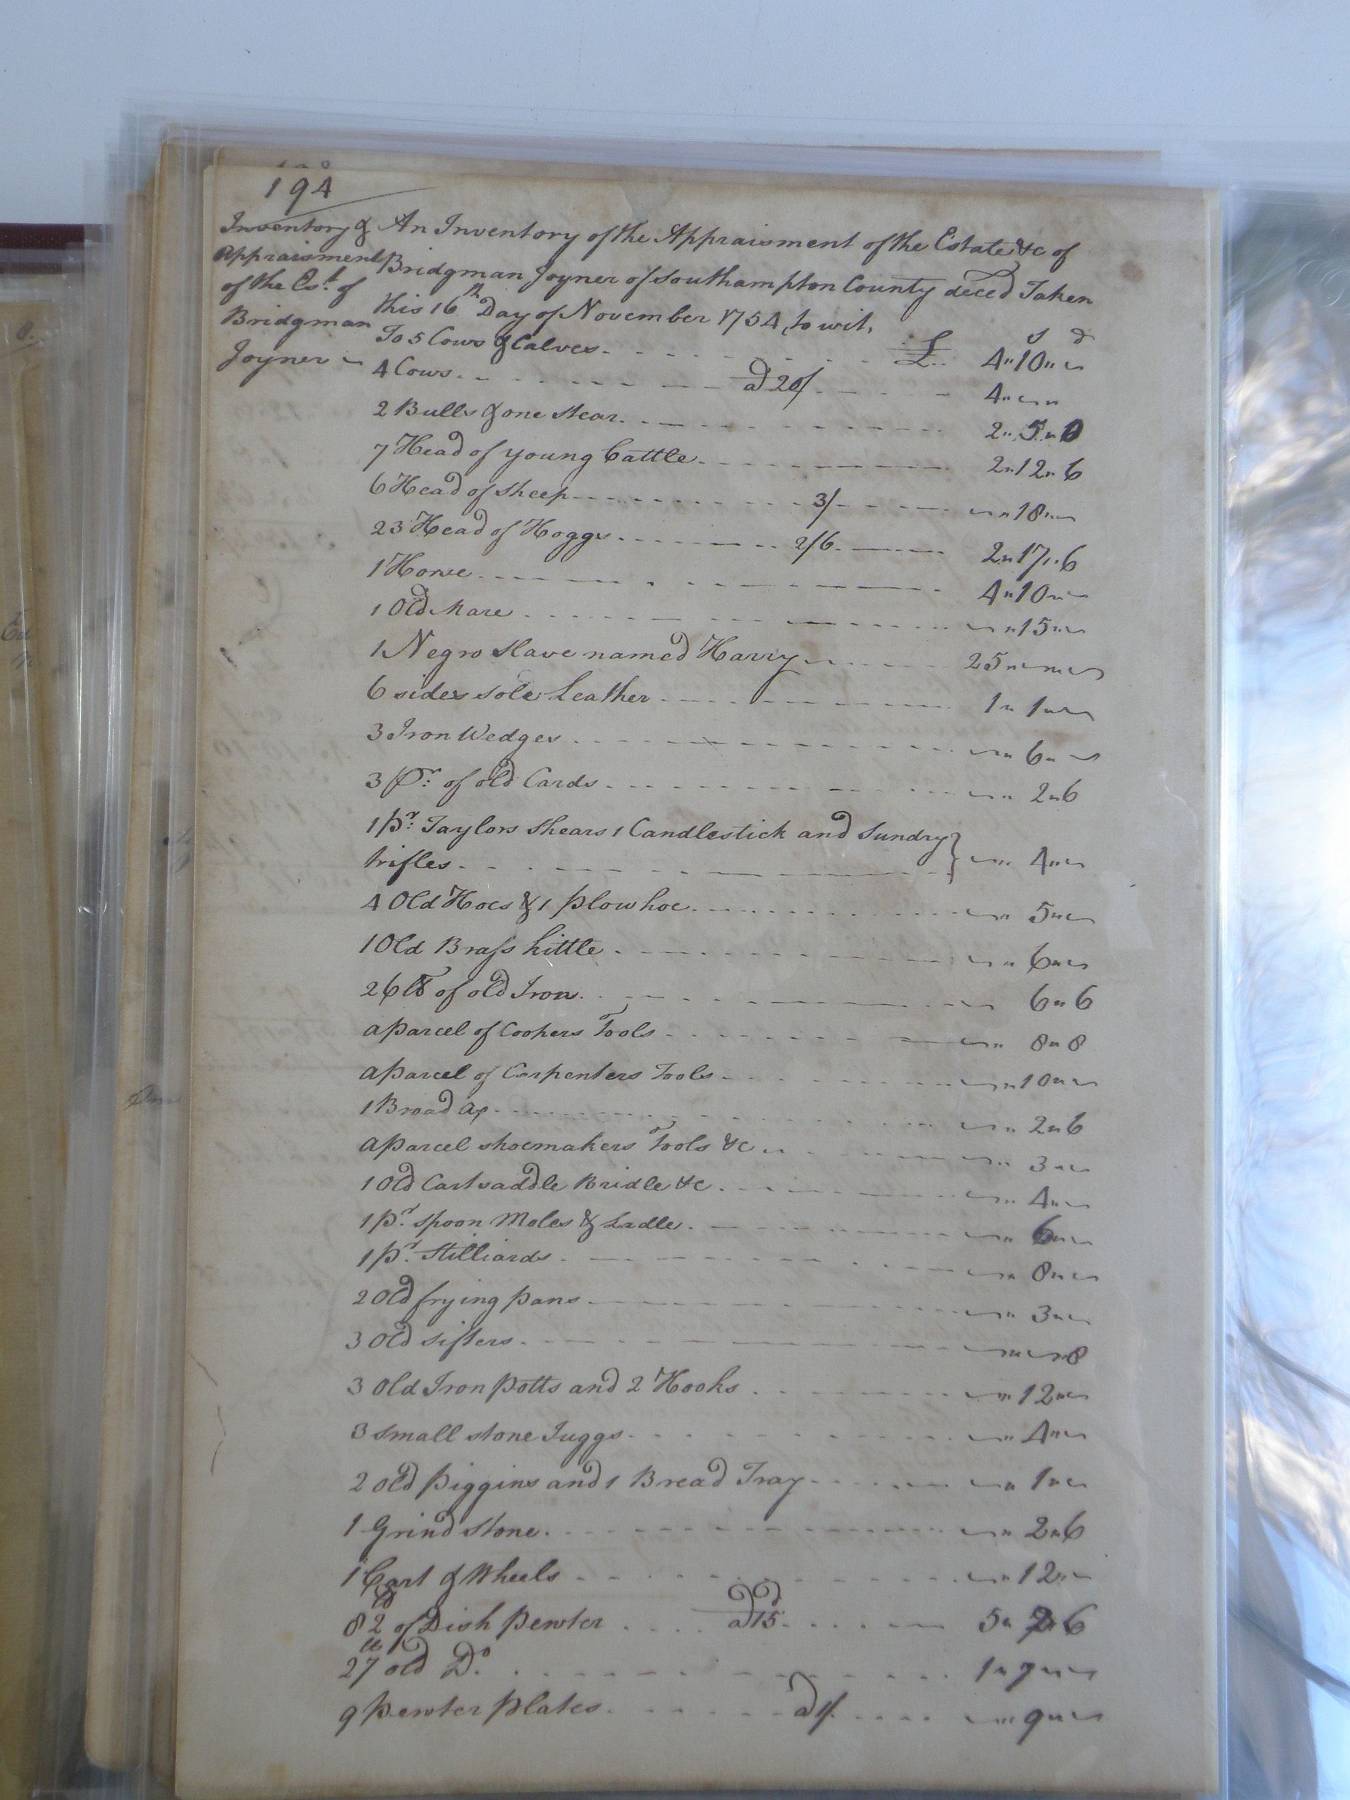 194
Inventory & Appraisment of the Est. of Bridgman Joyner
An Inventory of the Appraisment of the Estate &c of
Bridgman Joyner of Southampton County deced Taken
this 16th Day of November 1754, to wit,
£ s d
To 5 Cows & Calves 4" 10"
4 Cows a 20/ 4"
2 Bulls & one Stear 2" 5" 0
7 Head of young Cattle 2" 12" 6
6 Head of Sheep 3/ " 18"
23 Head of Hoggs 2/6 2" 17" 6
1 Horse 4" 10"
1 Old Mare " 15"
1 Negro Slave named Harry 25"
6 sides sole Leather 1" 1"
3 Iron Wedges " 6"
3 Pr. of old Cards " 2" 6
1 Pr. Taylors Shears 1 Candlestick and Sundry
trifles " 4"
4 Old Hoes & 1 plow hoe " 5"
1 Old Brass kittle " 6"
26 lb of old Iron 6" 6
a Parcel of Coopers Tools " 8" 8
a Parcel of Carpenters Tools " 10"
1 Broad Ax " 2" 6
a Parcel shoemakers Tools &c " 3"
1 Old Cart saddle Bridle &c " 4"
1 Pr. Spoon Moles & Ladle " 6"
1 Pr. Stilliards " 8"
2 Old frying pans " 3"
3 Old Sifters " " 8
3 Old Iron Potts and 2 Hooks " 12"
3 small stone Juggs " 4"
2 old Piggins and 1 Bread Tray " 1"
1 Grind Stone " 2" 6
1 Cart & Wheels " 12"
82 lb of Dish Pewter a 15d 5" 2" 6
27 lb old Do. 1" 7"
9 Pewter Plates a 1/ " 9"